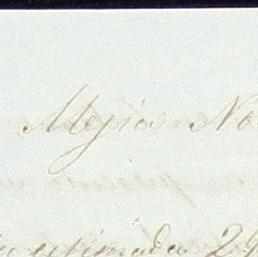 Mejia No
estimada 29